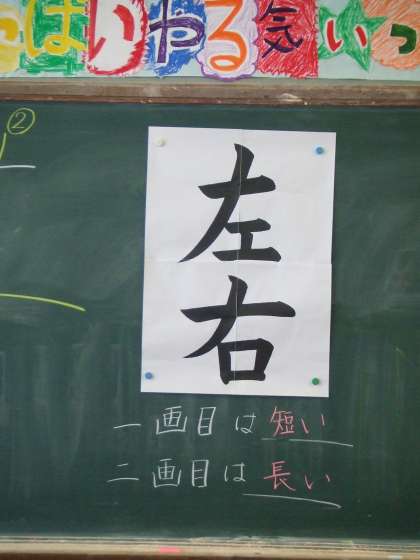 ばいやる気いっ
②
左
右
一画目は短い
二画目は長い